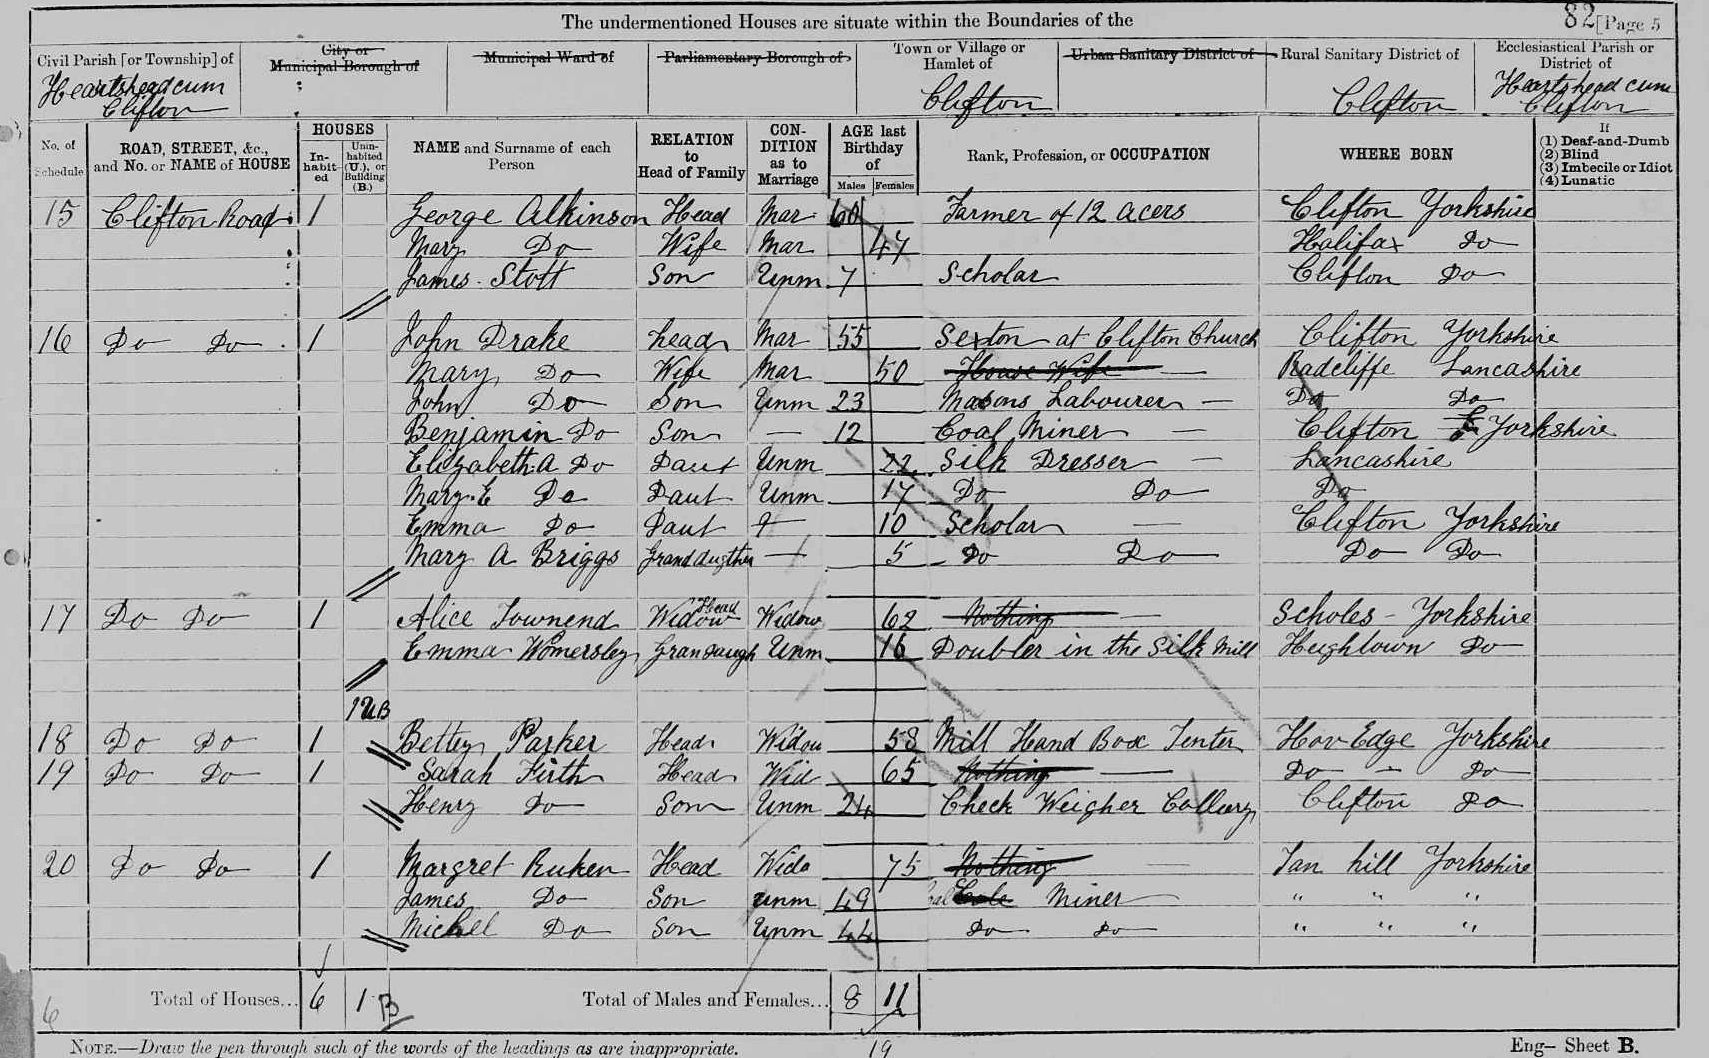 The undermentioned Houses are situate within the Boundaries of the
82 [Page 5
Civil Parish [or Township] of
Heartshead cum Clifton
City or Municipal Borough of
Municipal Ward of
Parliamentary Borough of
Town or Village or Hamlet of
Clifton
Urban Sanitary District of
Rural Sanitary District of
Clifton
Ecclesiastical Parish or District of
Heartshead cum Clifton
No. of Schedule
ROAD, STREET, &c., and No. or NAME of HOUSE
HOUSES
In-habit-ed
Unin-habited (U.), or Building (B.)
NAME and Surname of each Person
RELATION to Head of Family
CON-DITION as to Marriage
AGE last Birthday of
Males
Females
Rank, Profession, or OCCUPATION
WHERE BORN
If
(1) Deaf-and-Dumb
(2) Blind
(3) Imbecile or Idiot
(4) Lunatic
15 Clifton Road 1 George Atkinson Head Mar 60 Farmer of 12 acers Clifton Yorkshire
Mary Do Wife Mar 47 Halifax Do
James Stott Son Unm 7 Scholar Clifton Do
16 Do Do 1 John Drake head Mar 55 Sexton at Clifton Church Clifton Yorkshire
Mary Do Wife Mar 50 House Wife Radcliffe Lancashire
John Do Son Unm 23 Masons Labourer Do Do
Benjamin Do Son 12 Coal Miner Clifton Yorkshire
Elizabeth A Do Daut Unm 22 Silk Dresser Lancashire
Mary E Do Daut Unm 17 Do Do Do
Emma Do Daut 10 Scholar Clifton Yorkshire
Mary A Briggs Granddugther 5 Do Do Do Do
17 Do Do 1 Alice Townend Widow Head Widow 62 Nothing Scholes - Yorkshire
Emma Womersley Grandaugh Unm 16 Doubler in the Silk Mill Heightown Do
1 UB
18 Do Do 1 Bettey Parker Head Widow 58 Mill Hand Box Tenter Hov Edge Yorkshire
19 Do Do 1 Sarah Firth Head Wid 65 Nothing Do - Do
Henry Do Son Unm 24 Check Weigher Collury Clifton Do
20 Do Do 1 Margret Ruken Head Wido 75 Nothing Tan hill Yorkshire
James Do Son unm 49 Coal Miner " " "
Michell Do Son Unm 44 Do Do " " "
6 Total of Houses... 6 1 B Total of Males and Females... 8 11
19
NOTE.—Draw the pen through such of the words of the headings as are inappropriate.
Eng— Sheet B.